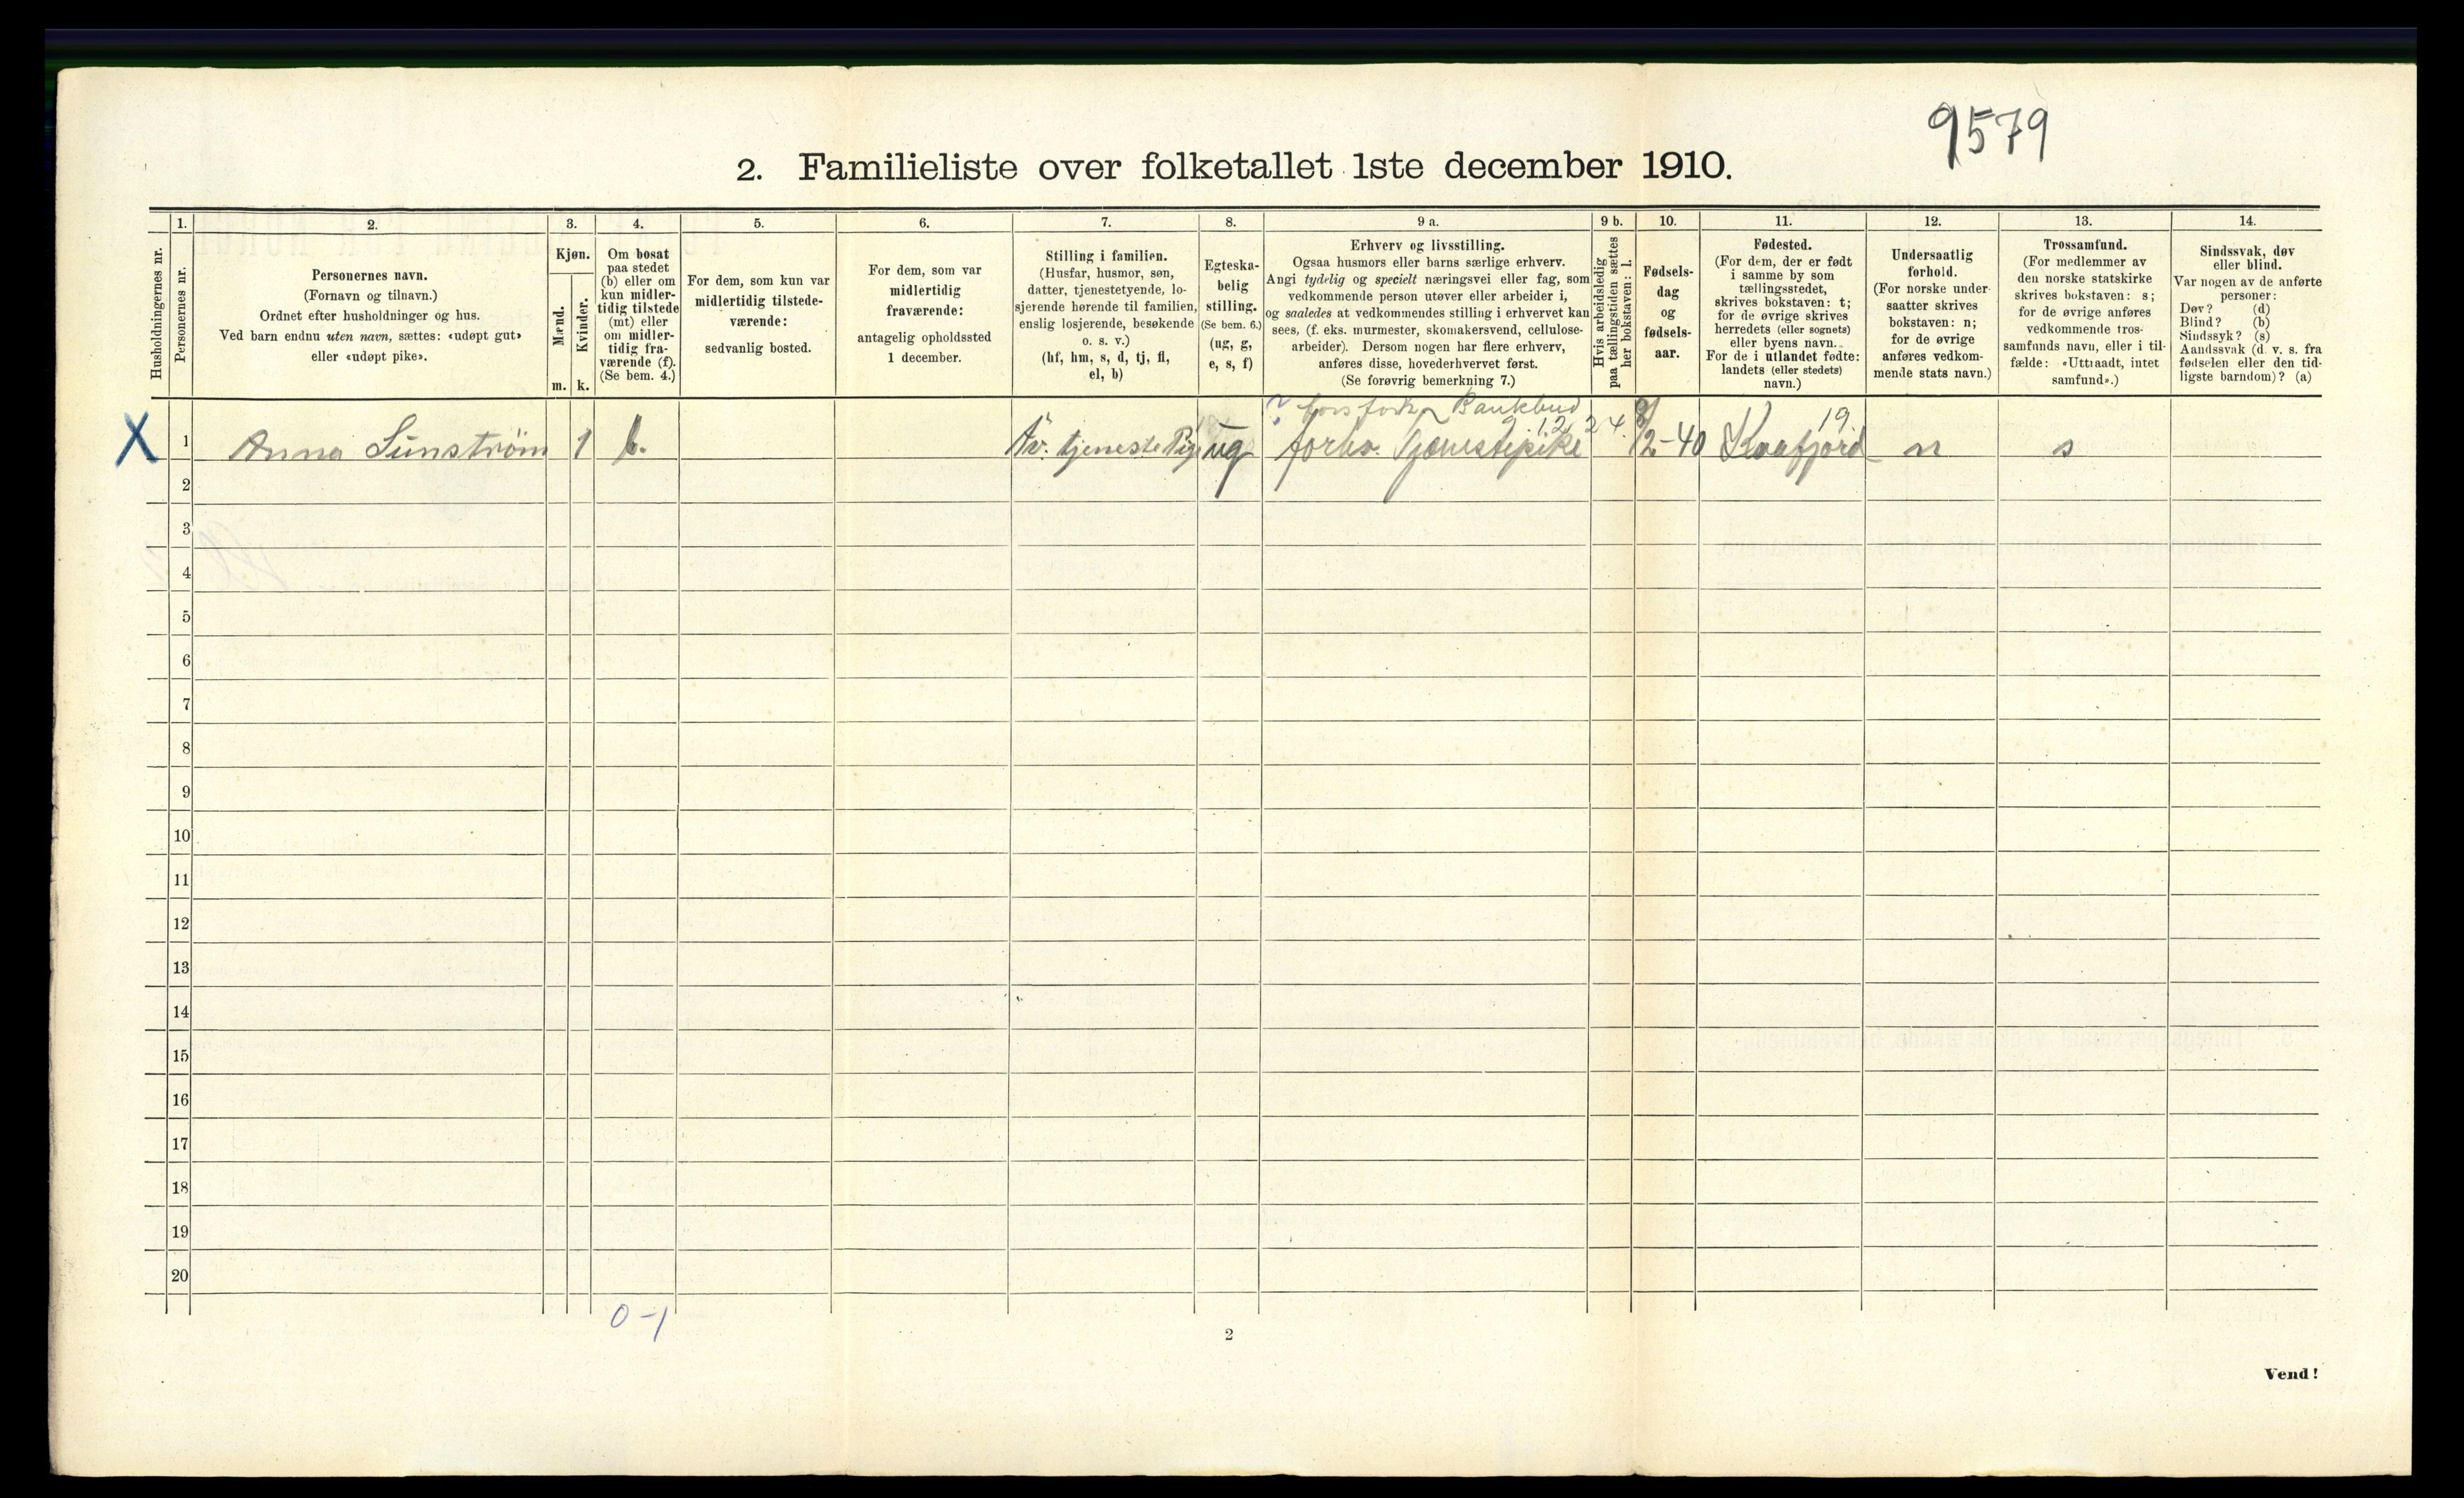 9579
2. Familieliste over folketallet 1ste december 1910.
Husholdningernes nr.
1.
Personernes nr.
2.
Personernes navn.
(Fornavn og tilnavn.)
Ordnet efter husholdninger og hus.
Ved barn endnu uten navn, sættes: «udøpt gut»
eller «udøpt pike».
3.
Kjøn.
Mænd.
Kvinder.
m. k.
4.
Om bosat
paa stedet
(b) eller om
kun midler-
tidig tilstede
(mt) eller
om midler-
tidig fra-
værende (f).
(Se bem. 4.)
5.
For dem, som kun var
midlertidig tilstede-
værende:
sedvanlig bosted.
6.
For dem, som var
midlertidig
fraværende:
antagelig opholdssted
1 december.
7.
Stilling i familien.
(Husfar, husmor, søn,
datter, tjenestetyende, lo-
sjerende hørende til familien,
enslig losjerende, besøkende
o. s. v.)
(hf, hm, s, d, tj, fl,
el, b)
8.
Egteska-
belig
stilling.
(Se bem. 6.)
(ug, g,
e, s, f)
9 a.
Erhverv og livsstilling.
Ogsaa husmors eller barns særlige erhverv.
Angi tydelig og specielt næringsvei eller fag, som
vedkommende person utøver eller arbeider i,
og saaledes at vedkommendes stilling i erhvervet kan
sees, (f. eks. murmester, skomakersvend, cellulose-
arbeider). Dersom nogen har flere erhverv,
anføres disse, hovederhvervet først.
(Se forøvrig bemerkning 7.)
9 b.
Hvis arbeidsledig
paa tællingstiden sættes
her bokstaven: l.
10.
Fødsels-
dag
og
fødsels-
aar.
11.
Fødested.
(For dem, der er født
i samme by som
tællingsstedet,
skrives bokstaven: t;
for de øvrige skrives
herredets (eller sognets)
eller byens navn.
For de i utlandet fødte:
landets (eller stedets)
navn.)
12.
Undersaatlig
forhold.
(For norske under-
saatter skrives
bokstaven: n;
for de øvrige
anføres vedkom-
mende stats navn.)
13.
Trossamfund.
(For medlemmer av
den norske statskirke
skrives bokstaven: s;
for de øvrige anføres
vedkommende tros-
samfunds navn, eller i til-
fælde: «Uttraadt, intet
samfund».)
14.
Sindssvak, døv
eller blind.
Var nogen av de anførte
personer:
Døv? (d)
Blind? (b)
Sindssyk? (s)
Aandssvak (d. v. s. fra
fødselen eller den tid-
ligste barndom)? (a)
? Bankbud
9.12 24. 19.
X 1 Anna Sunström 1 b. tjeneste Pige ug forhv. Tjenestepike 8/2-40 Kvafjord n s
2
3
4
5
6
7
8
9
10
11
12
13
14
15
16
17
18
19
20
0-1
2
Vend!